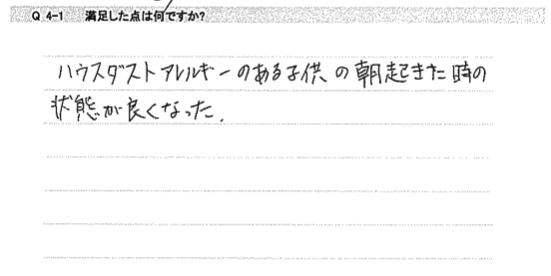 Q 4-1 満足した点は何ですか?
ハウスダストアレルギーのある子供の朝起きた時の
状態が良くなった.